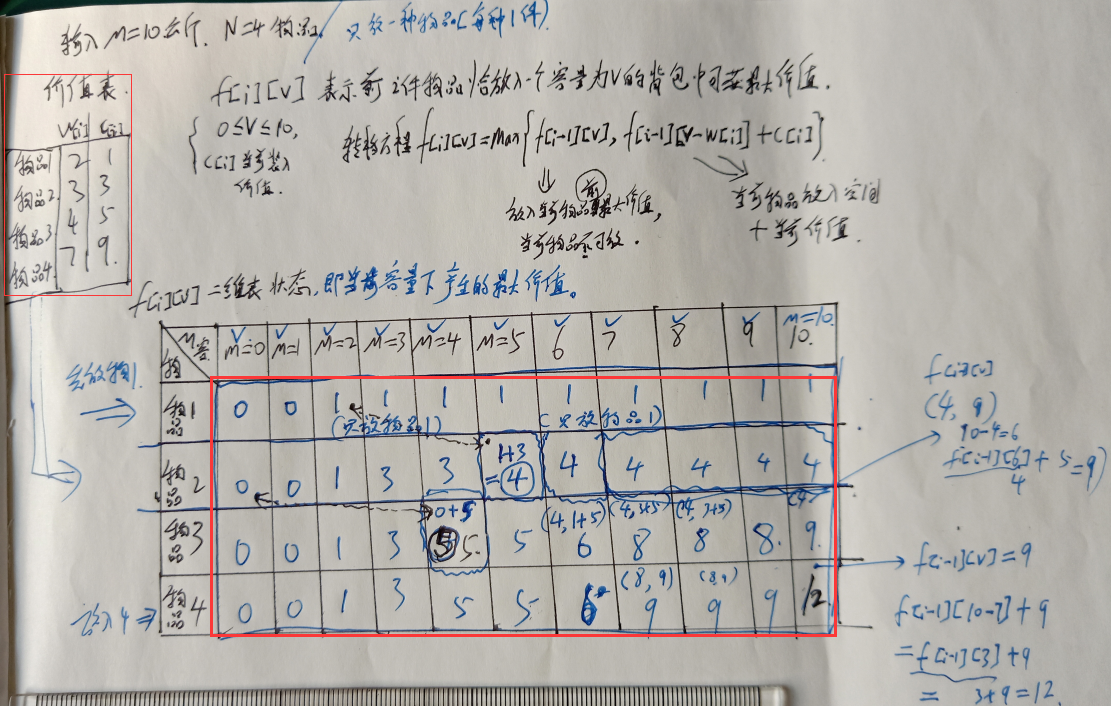 输入 M=10公斤. N=4物品. / 只放一种物品(每种1件)
价值表.
W[i] C[i]
物品1 2 1
物品2 3 3
物品3 4 5
物品4 7 9.
f[i][v] 表示前i件物品恰放入一个容量为V的背包中可获最大价值.
0≤V≤10,
C[i]当前装入
价值.
转移方程 f[i][v]=Max{f[i-1][v], f[i-1][v-W[i]]+C[i]}
放入当前物品前最大价值,
当前物品不可放.
当前物品放入空间
+当前价值.
f[i][v]二维表状态,即当前容量下产生的最大价值。
物 M容 M=0 M=1 M=2 M=3 M=4 M=5 6 7 8 9 M=10. 10.
去放物1.
物品1 0 0 1 1 1 1 1 1 1 1 1
(只放物品1) (只放物品1)
1+3
物品2 0 0 1 3 3 =4 4 4 4 4 4
0+5 (4,1+5) (4,3+5) (4,3+5) (4,
物品3 0 0 1 3 5 5. 5 6 8 8 8. 9.
(8,9) (8,9)
放入4 ⇒ 物品4 0 0 1 3 5 5 6 9 9 9 12
f[i][v]
(4, 9)
10-4=6
f[i-1][6]+5=9)
4
f[i-1][v]=9
f[i-1][10-7]+9
=f[i-1][3]+9
= 3+9=12.